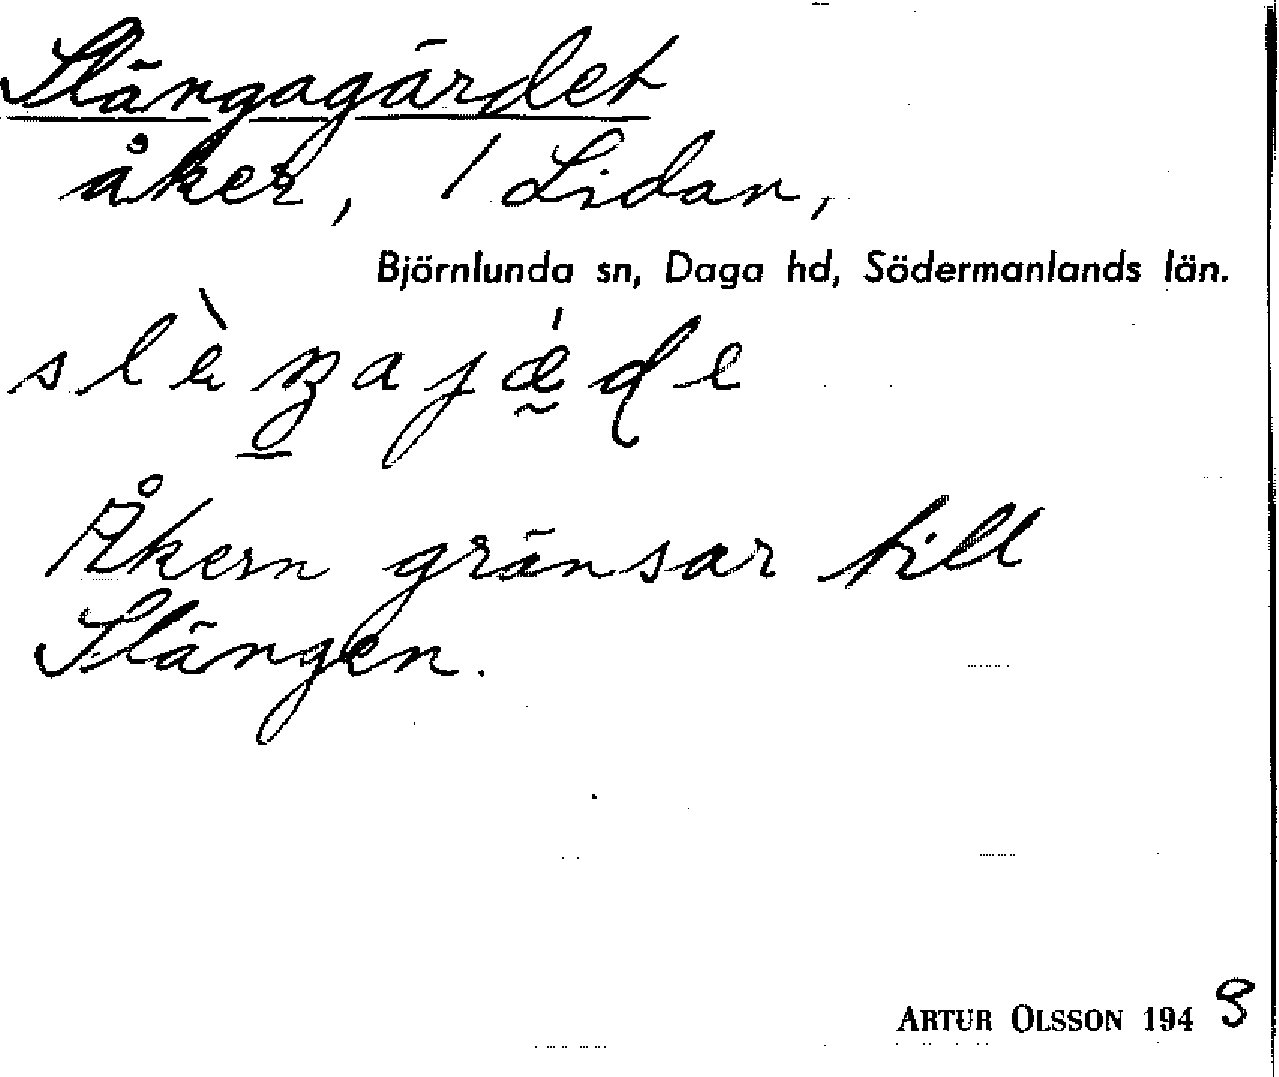 Slängagärdet
åker, / Lidan,
Björnlunda sn, Daga hd, Södermanlands län.
slèŋajǽɖe
Åkern gränsar till
Slängen.
ARTUR OLSSON 1948